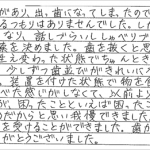 があり、出っ歯になってしまったので
るつもりはありませんでした。しか
なり、話しづらいししゃべりづ
療を決めました。歯を抜くと思
生え変わった状態でちゃんとき
少しずつ歯並びがきれいに
。装置を付けた状態で物を
べた感じがしなくて、以前よりも
が、困ったことといえば困ったこ
のだからと思い我慢できました。
を受けることができました。歯が
がとうございました。